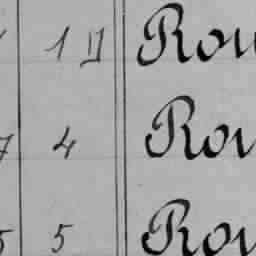 1 Rou
7 4 Rou
5 5 Rou